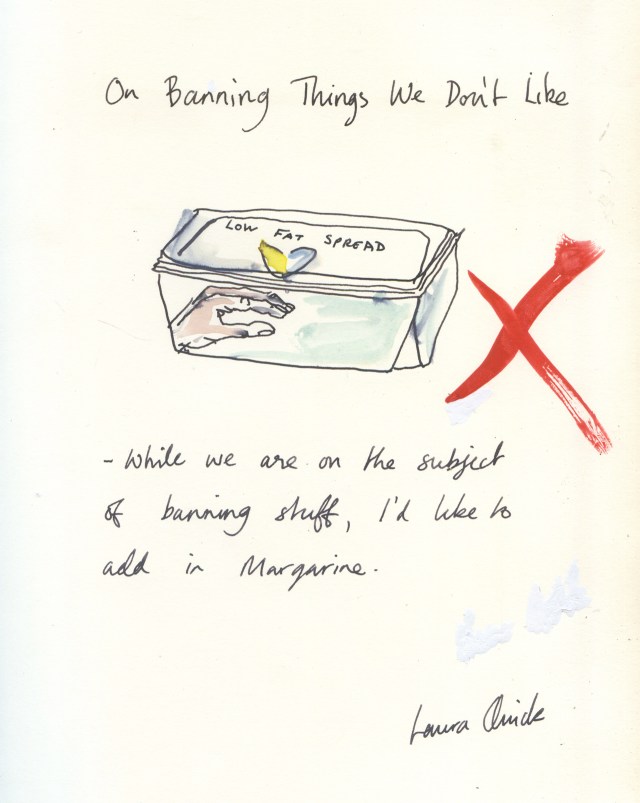 On Banning Things We Don't Like
LOW FAT SPREAD
- While we are on the subject
of banning stuff, I'd like to
add in Margarine.
Laura Quick